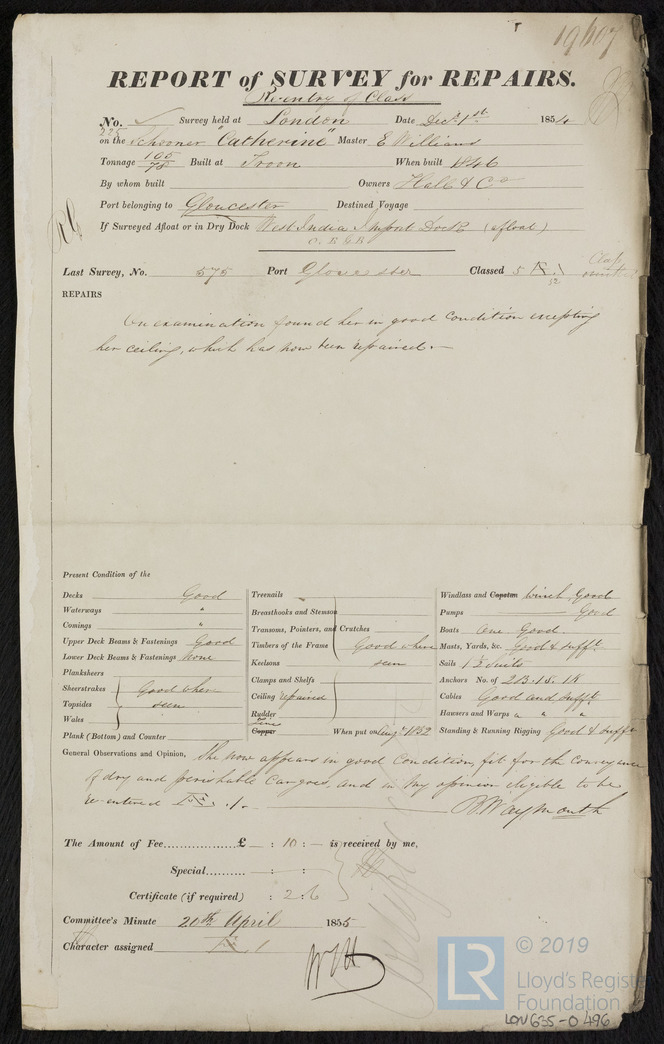 19607
REPORT of SURVEY for REPAIRS.
Re-entry of Class
No. 225 Survey held at London Date Decr. 1st 1854
on the Schooner "Catherine" Master E Williams
Tonnage 105/78 Built at Troon When built 1846
By whom built Owners Hall & Co
Port belonging to Gloucester Destined Voyage
If Surveyed Afloat or in Dry Dock West India Import Dock (afloat)
Last Survey, No. 575 Port Gloucester Classed 5
REPAIRS
On examination found her in good condition excepting
her ceiling, which has now been repaired.—
Present Condition of the
Decks Good
Waterways "
Comings "
Upper Deck Beams & Fastenings Good
Lower Deck Beams & Fastenings none
Planksheers
Sheerstrakes
Topsides
Wales
Good where
seen
Plank (Bottom) and Counter
Treenails
Breasthooks and Stemson
Transoms, Pointers, and Crutches
Timbers of the Frame
Keelsons
Good where
seen
Clamps and Shelfs
Ceiling repaired
Rudder
Copper When put on Augt 1852
Windlass and Capstan winch, Good
Pumps Good
Boats One Good
Masts, Yards, &c. Good & sufft.
Sails 1½ suits
Anchors No. of 2B. 1S. 1K
Cables Good and sufft.
Hawsers and Warps " " "
Standing & Running Rigging Good & suff
General Observations and Opinion, She now appears in good Condition, fit for the conveyance
of dry and perishable Cargoes, and in my opinion eligible to be
re-entered
Waymouth
The Amount of Fee................£ — : 10 : — is received by me,
Special.......... — : — :
Certificate (if required) : 2.6
Committee's Minute 20th April 1855
Character assigned
LR
© 2019
Lloyd's Registe
Foundation
LON635-0496